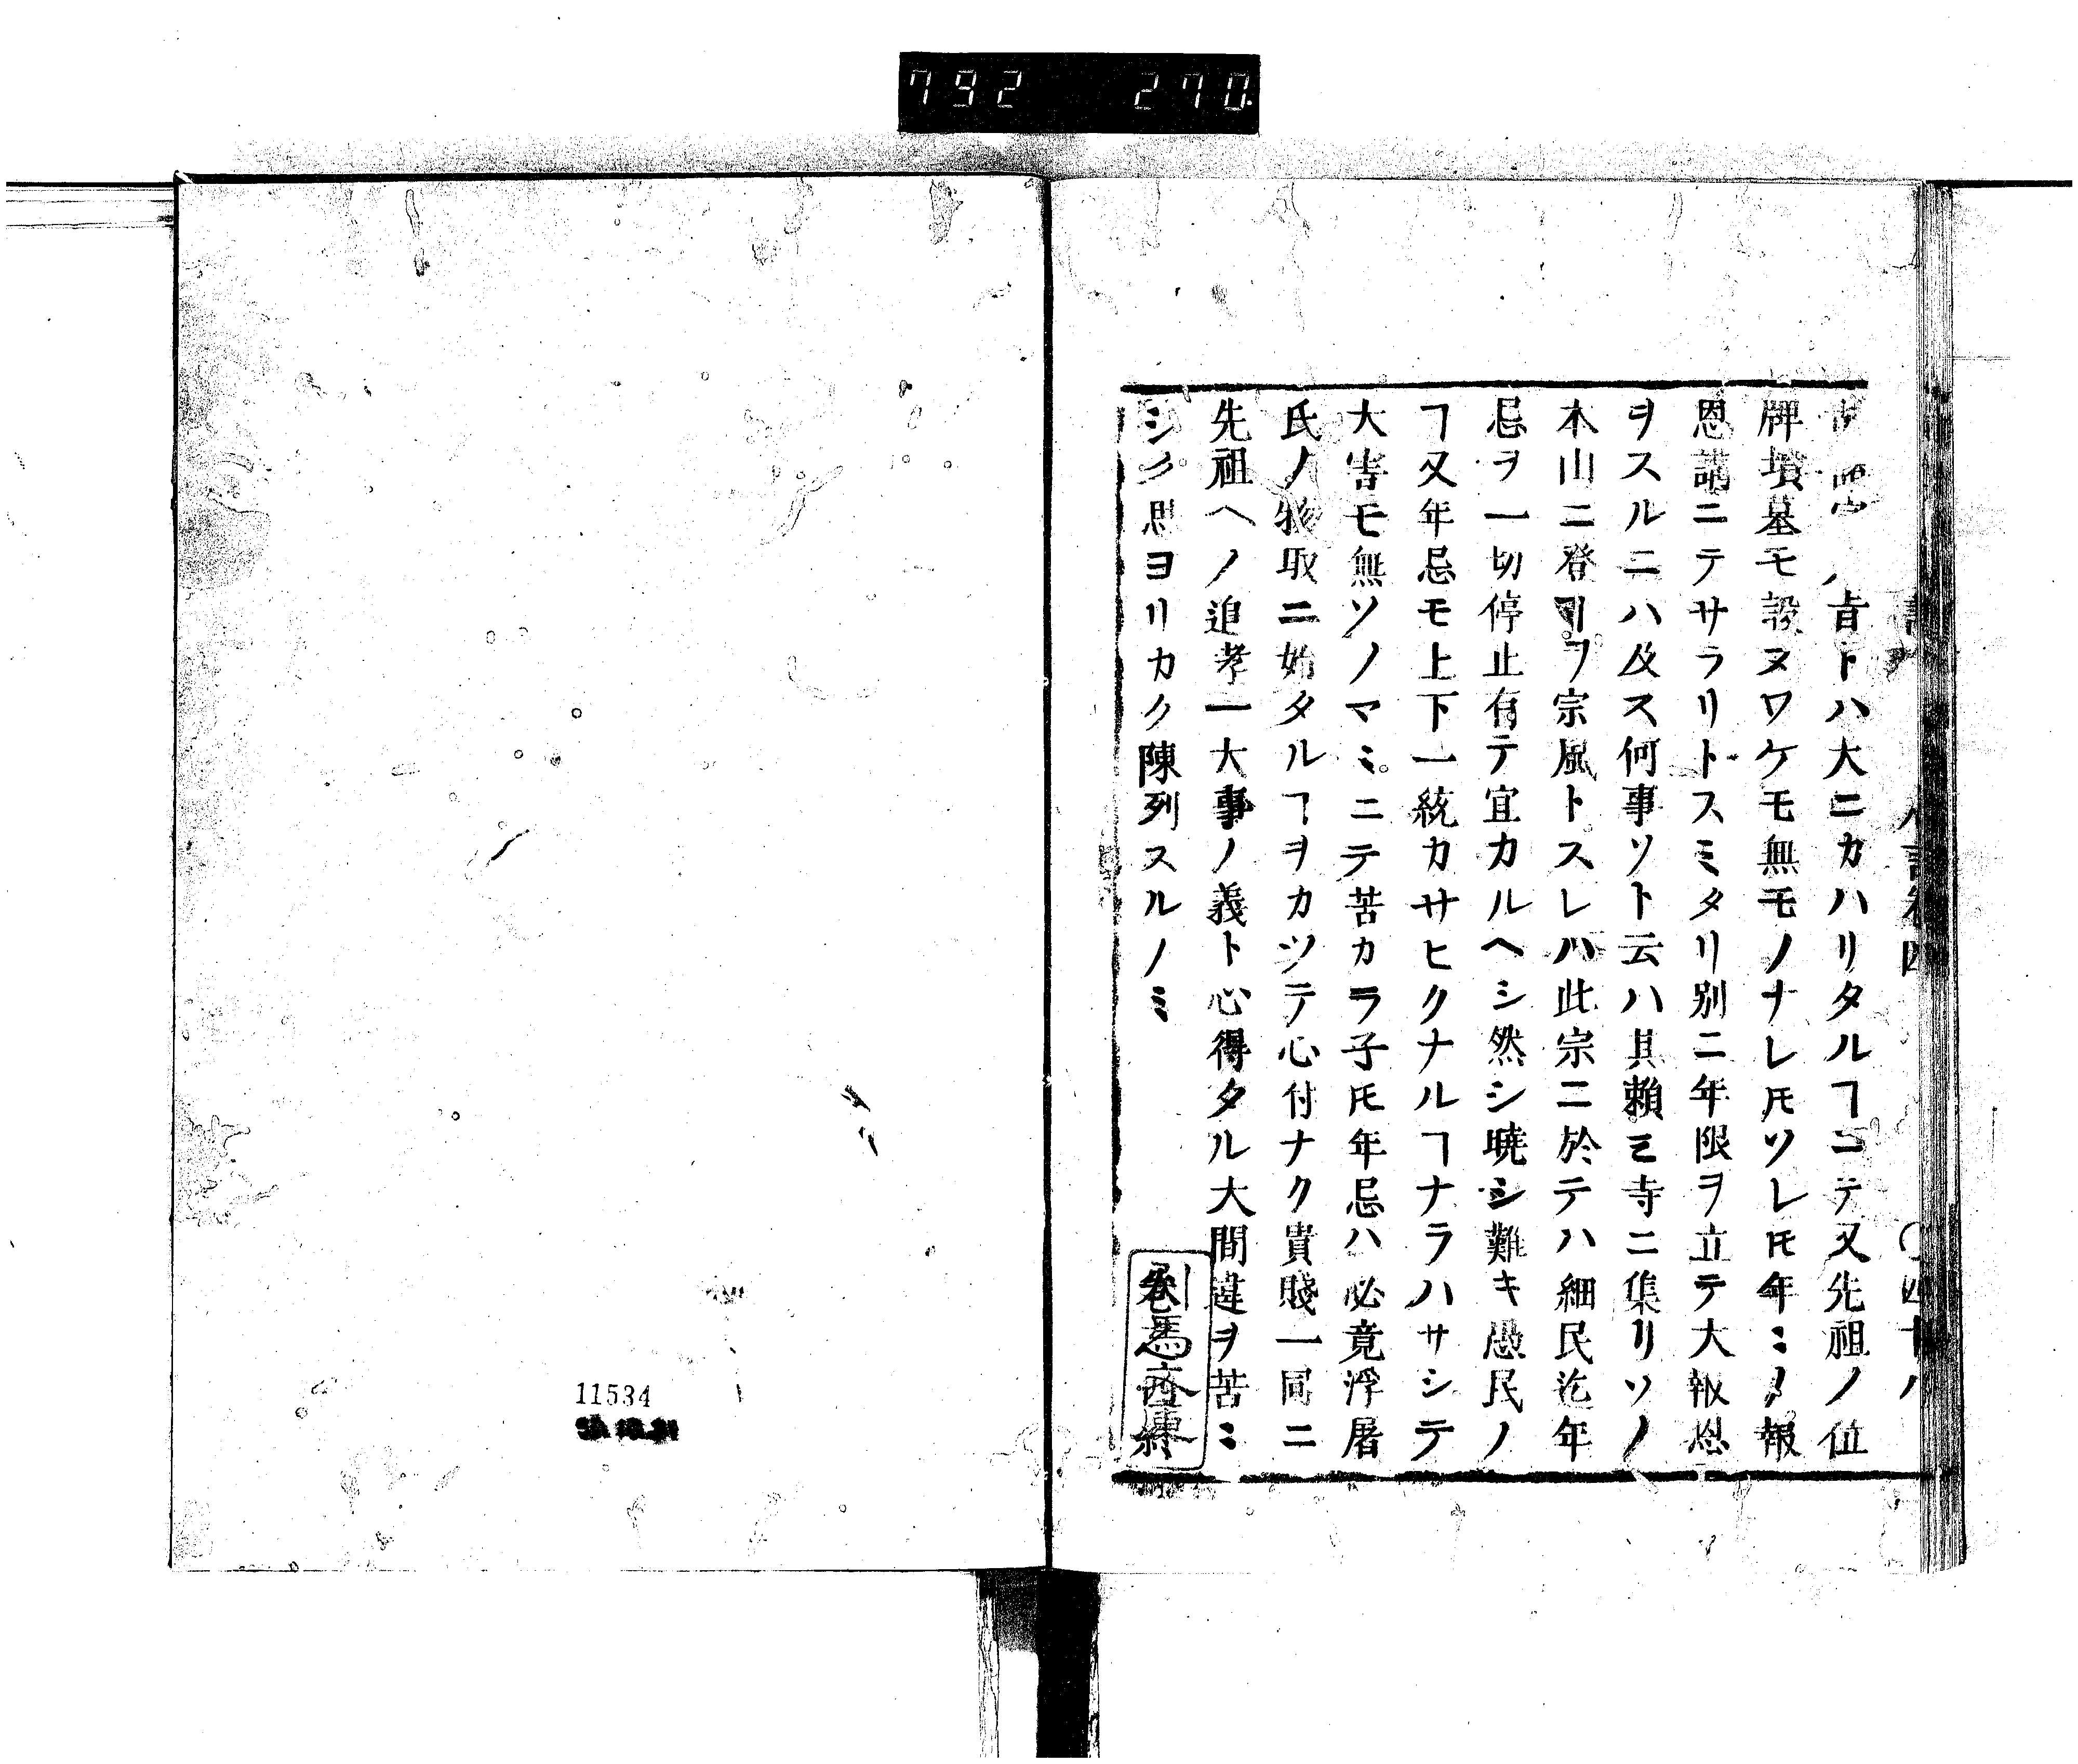 792 270
旨トハ大ニカハリタルヿニテ又先祖ノ位
牌墳墓モ設ヌワケモ無モノナレ𪜈ソレ𪜈年ミノ報
恩講ニテサラリトスミタリ別ニ年限ヲ立テ大報恩
ヲスルニハ及ス何事ソト云ハ其頼ミ寺ニ集リソノ
本山ニ登リヲ宗風トスレハ此宗ニ於テハ細民迄年
忌ヲ一切停止有テ宜カルヘシ然シ曉シ難キ愚民ノ
ヿ又年忌モ上下一統カサヒクナルヿナラハサシテ
大害モ無ソノマミニテ苦カラ子𪜈年忌ハ必竟浮屠
氏ノ物取ニ始タルヿヲカツテ心付ナク貴賤一同ニ
先祖ヘノ追孝一大事ノ義ト心得タル大間違ヲ苦ミ
シク思ヨリカク陳列スルノミ
11534